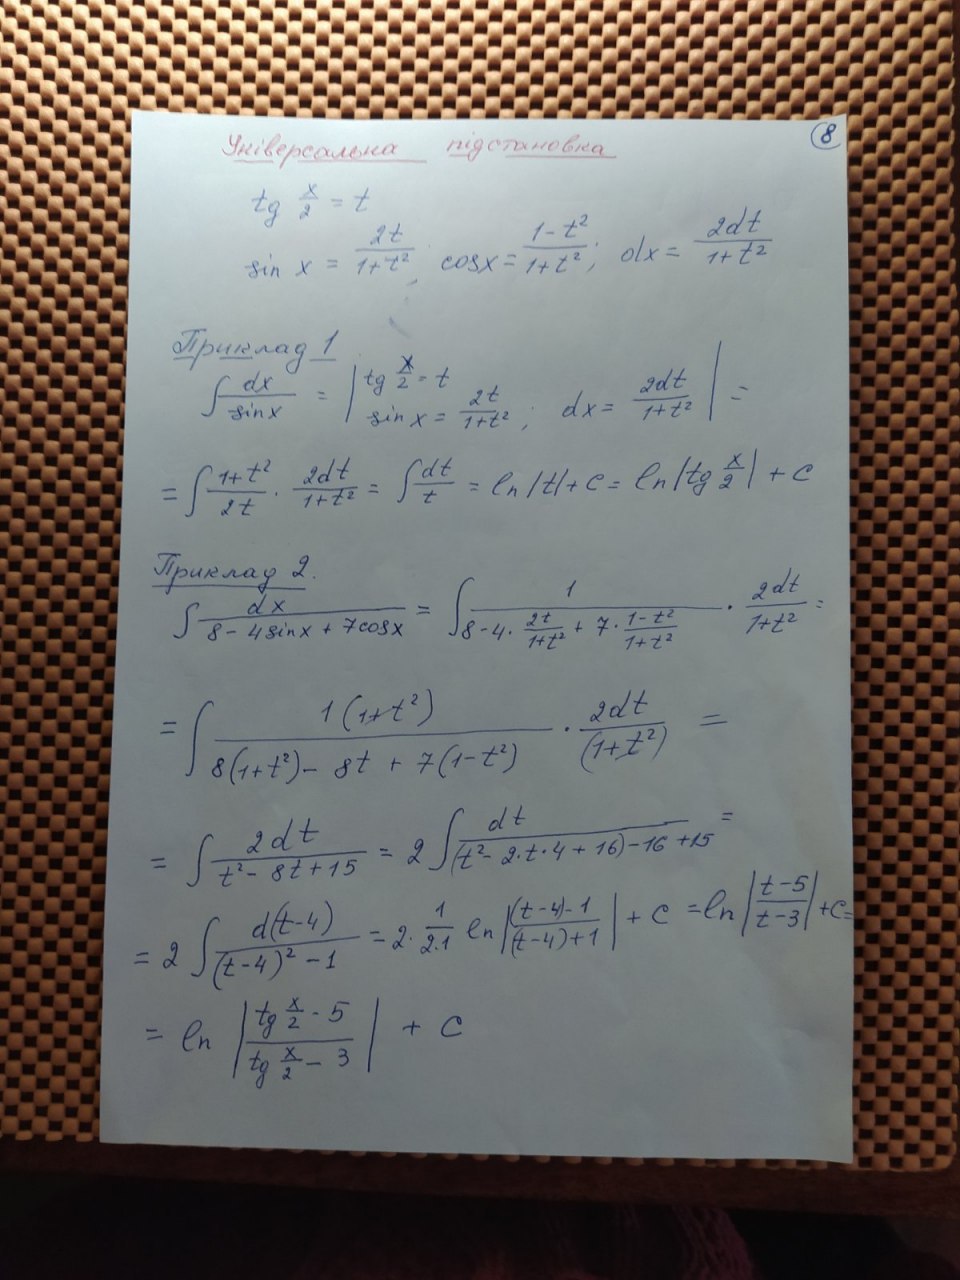 8
Універсальна підстановка
tg x/2 = t
sin x = 2t/(1+t²); cosx = (1-t²)/(1+t²); dx = 2dt/(1+t²)
Приклад 1
∫ dx/sinx = | tg x/2 = t sin x = 2t/(1+t²); dx = 2dt/(1+t²) | =
= ∫ (1+t²)/2t · 2dt/(1+t²) = ∫ dt/t = ln|t| + C = ln|tg x/2| + C
Приклад 2.
∫ dx/(8 - 4sinx + 7cosx) = ∫ 1/(8 - 4 · 2t/(1+t²) + 7 · (1-t²)/(1+t²)) · 2dt/(1+t²) =
= ∫ 1(1+t²)/(8(1+t²) - 8t + 7(1-t²)) · 2dt/(1+t²) =
= ∫ 2dt/(t² - 8t + 15) = 2 ∫ dt/((t² - 2·t·4 + 16) - 16 + 15) =
= 2 ∫ d(t-4)/((t-4)² - 1) = 2 · 1/(2·1) ln |((t-4)-1)/((t-4)+1)| + C = ln |(t-5)/(t-3)| + C =
= ln |(tg x/2 - 5)/(tg x/2 - 3)| + C